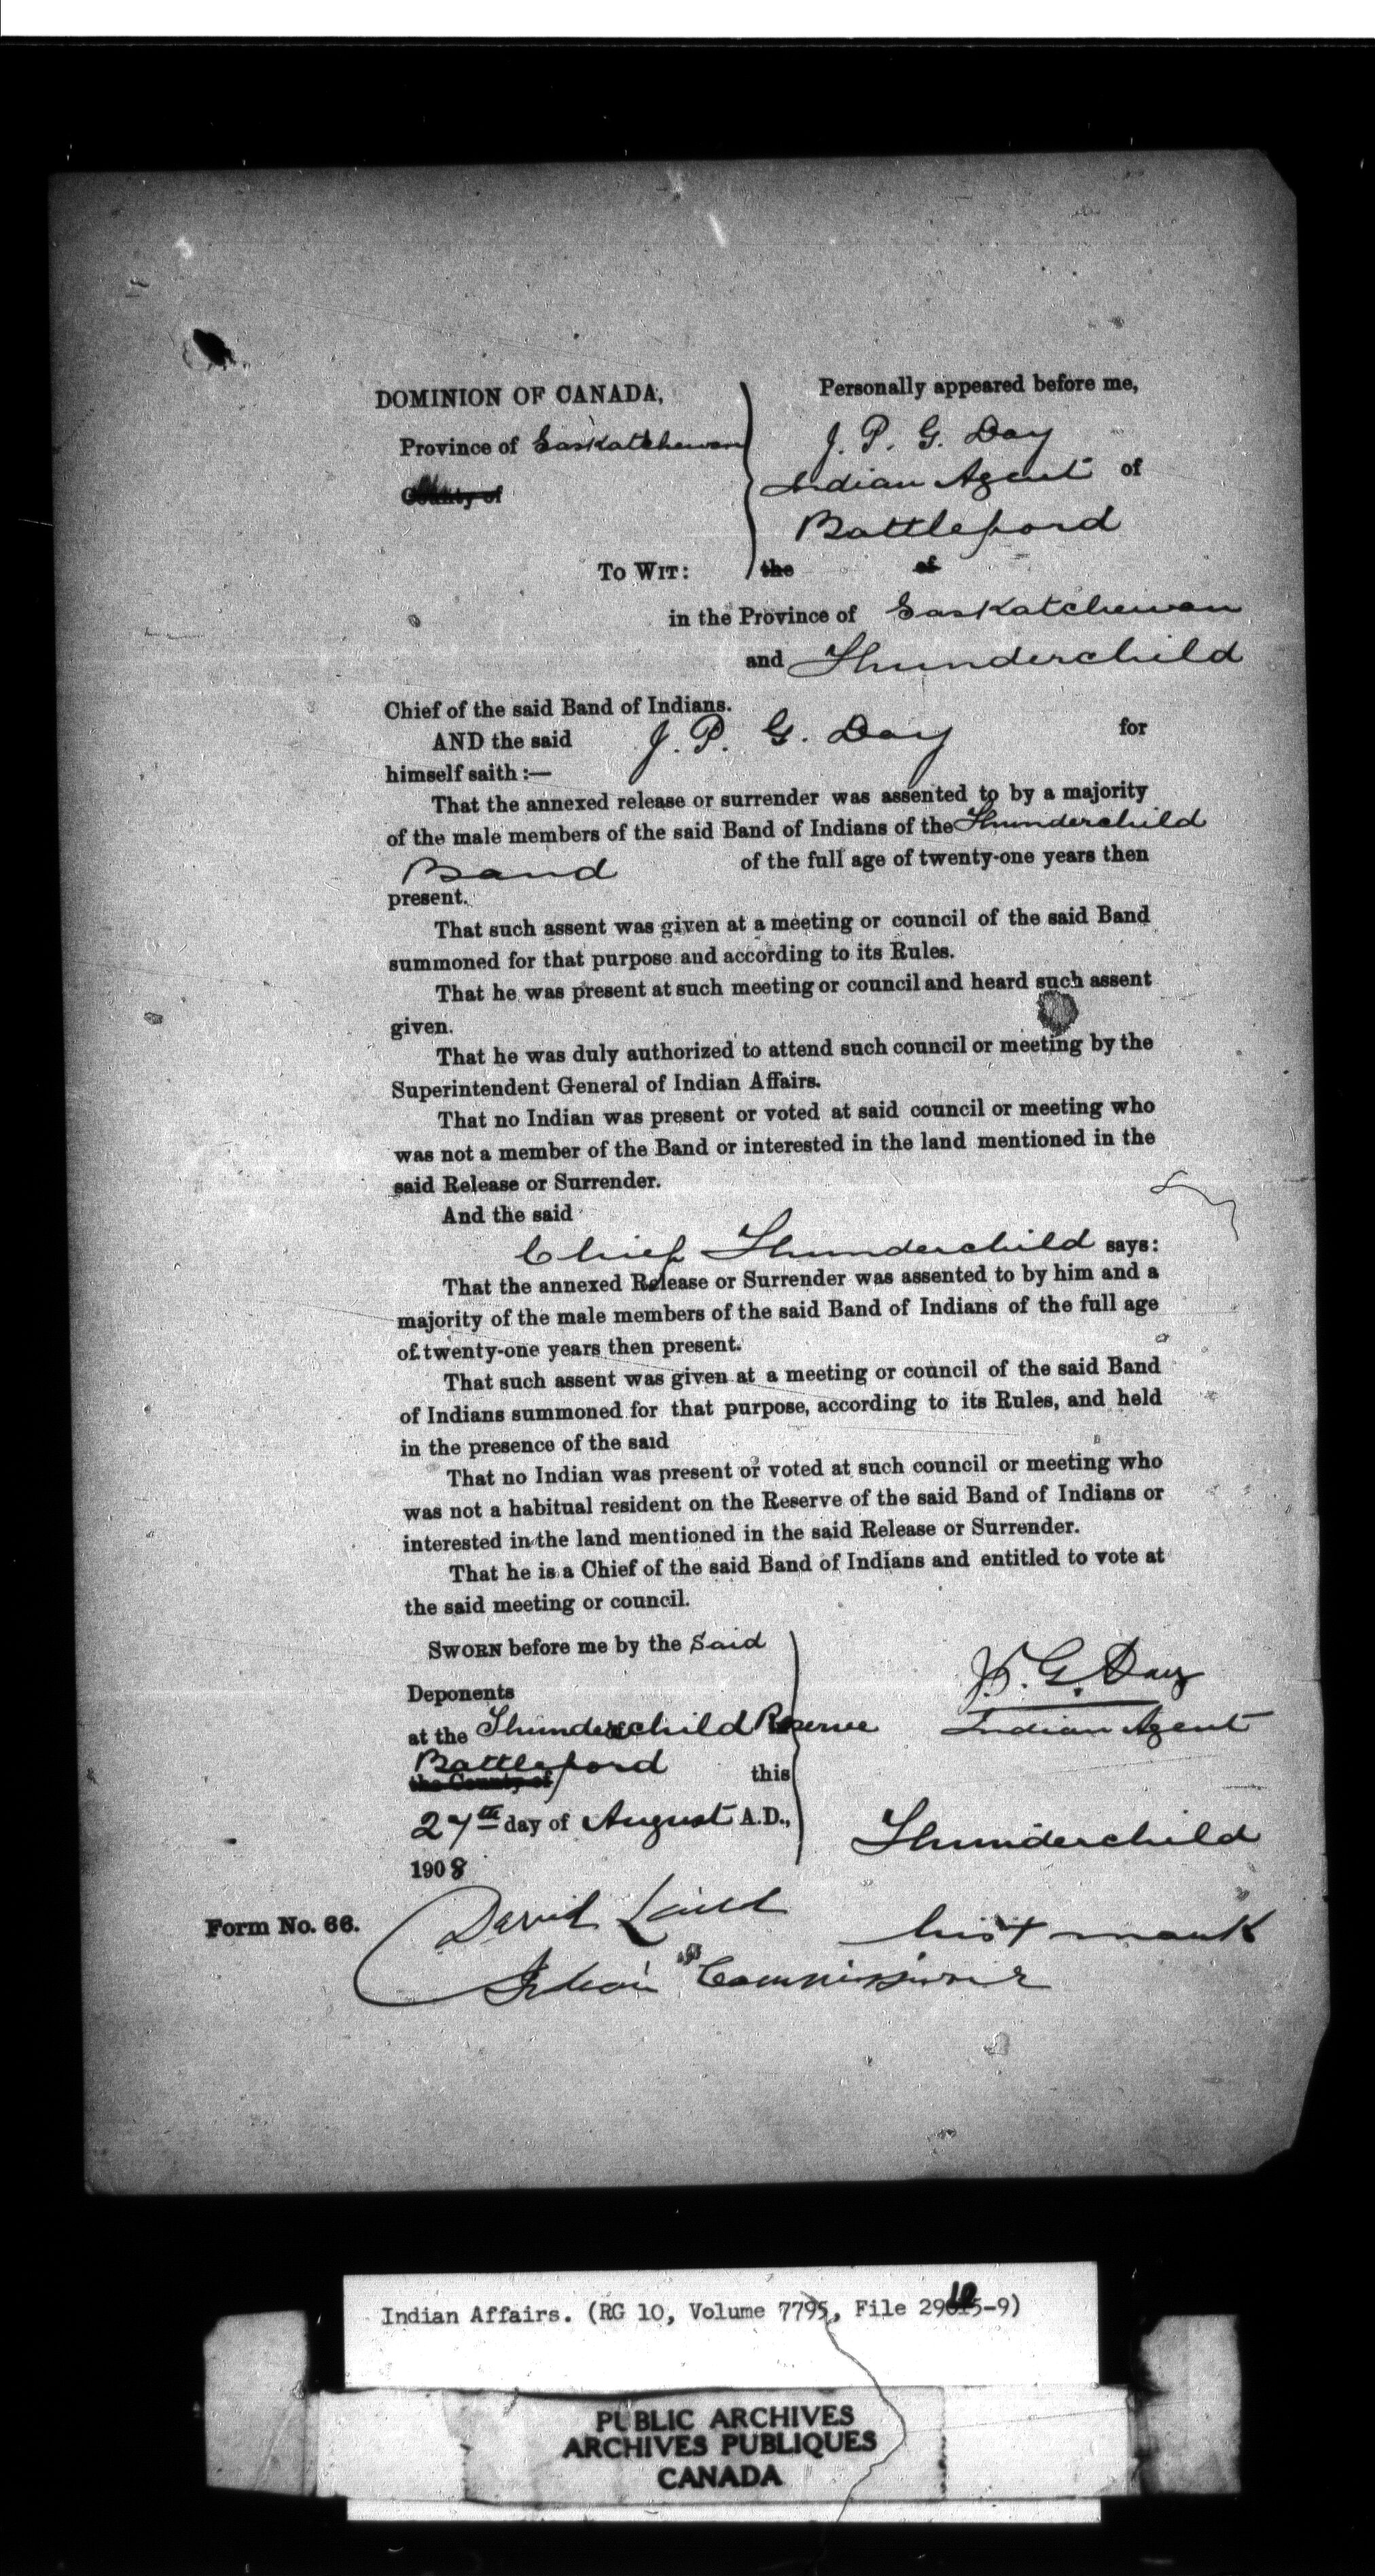 DOMINION OF CANADA,
Province of Saskatchewan
County of
To Wit:
Personally appeared before me,
J. P. G. Day
Indian Agent of
Battleford
the of
in the Province of Saskatchewan
and Thunderchild
Chief of the said Band of Indians.
AND the said J. P. G. Day for
himself saith :—
That the annexed release or surrender was assented to by a majority
of the male members of the said Band of Indians of the Thunderchild
Band of the full age of twenty-one years then
present.
That such assent was given at a meeting or council of the said Band
summoned for that purpose and according to its Rules.
That he was present at such meeting or council and heard such assent
given.
That he was duly authorized to attend such council or meeting by the
Superintendent General of Indian Affairs.
That no Indian was present or voted at said council or meeting who
was not a member of the Band or interested in the land mentioned in the
said Release or Surrender.
And the said
Chief Thunderchild says:
That the annexed Release or Surrender was assented to by him and a
majority of the male members of the said Band of Indians of the full age
of twenty-one years then present.
That such assent was given at a meeting or council of the said Band
of Indians summoned for that purpose, according to its Rules, and held
in the presence of the said
That no Indian was present or voted at such council or meeting who
was not a habitual resident on the Reserve of the said Band of Indians or
interested in the land mentioned in the said Release or Surrender.
That he is a Chief of the said Band of Indians and entitled to vote at
the said meeting or council.
Sworn before me by the Said
Deponents
at the Thunderchild Reserve
Battleford
the County of this
27th day of August A.D.,
1908
J. P. G. Day
Indian Agent
Thunderchild
his + mark
David Laird
Indian Commissioner
Form No. 66.
Indian Affairs. (RG 10, Volume 7795, File 29612-9)
PUBLIC ARCHIVES
ARCHIVES PUBLIQUES
CANADA